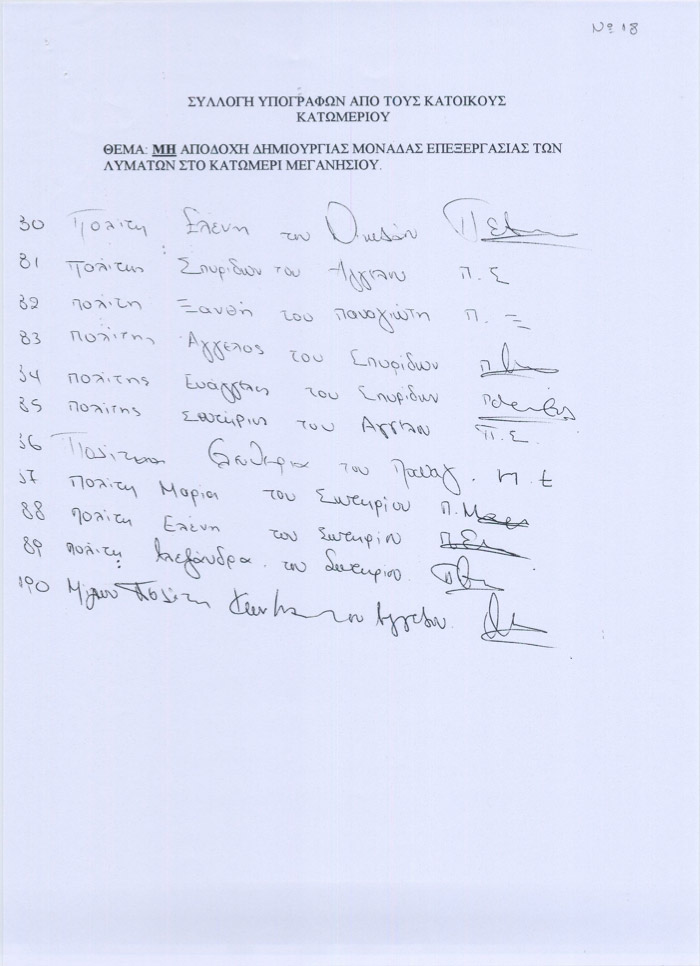 Νο 18
ΣΥΛΛΟΓΗ ΥΠΟΓΡΑΦΩΝ ΑΠΟ ΤΟΥΣ ΚΑΤΟΙΚΟΥΣ
ΚΑΤΩΜΕΡΙΟΥ
ΘΕΜΑ: ΜΗ ΑΠΟΔΟΧΗ ΔΗΜΙΟΥΡΓΙΑΣ ΜΟΝΑΔΑΣ ΕΠΕΞΕΡΓΑΣΙΑΣ ΤΩΝ
ΛΥΜΑΤΩΝ ΣΤΟ ΚΑΤΩΜΕΡΙ ΜΕΓΑΝΗΣΙΟΥ.
80 Πολίτη Ελένη του
81 Πολίτης Σπυρίδων του Αγγέλου Π. Σ
82 πολίτη Ξανθή του παναγιώτη Π. Ξ
83 Πολίτης Αγγελος του Σπυρίδων
84 πολίτης Ευάγγελος του Σπυρίδων
85 πολίτης Σωτήριος του Αγγέλου Π. Σ.
86 Ελευθερία του Παναγ. Π. Ε
87 Πολίτη Μαρία του Σωτηρίου Π. Μαρ
88 πολίτη Ελένη του Σωτηρίου
89 πολίτη Αλεξάνδρα του Σωτηρίου
190 Πολίτη του Αγγέλου